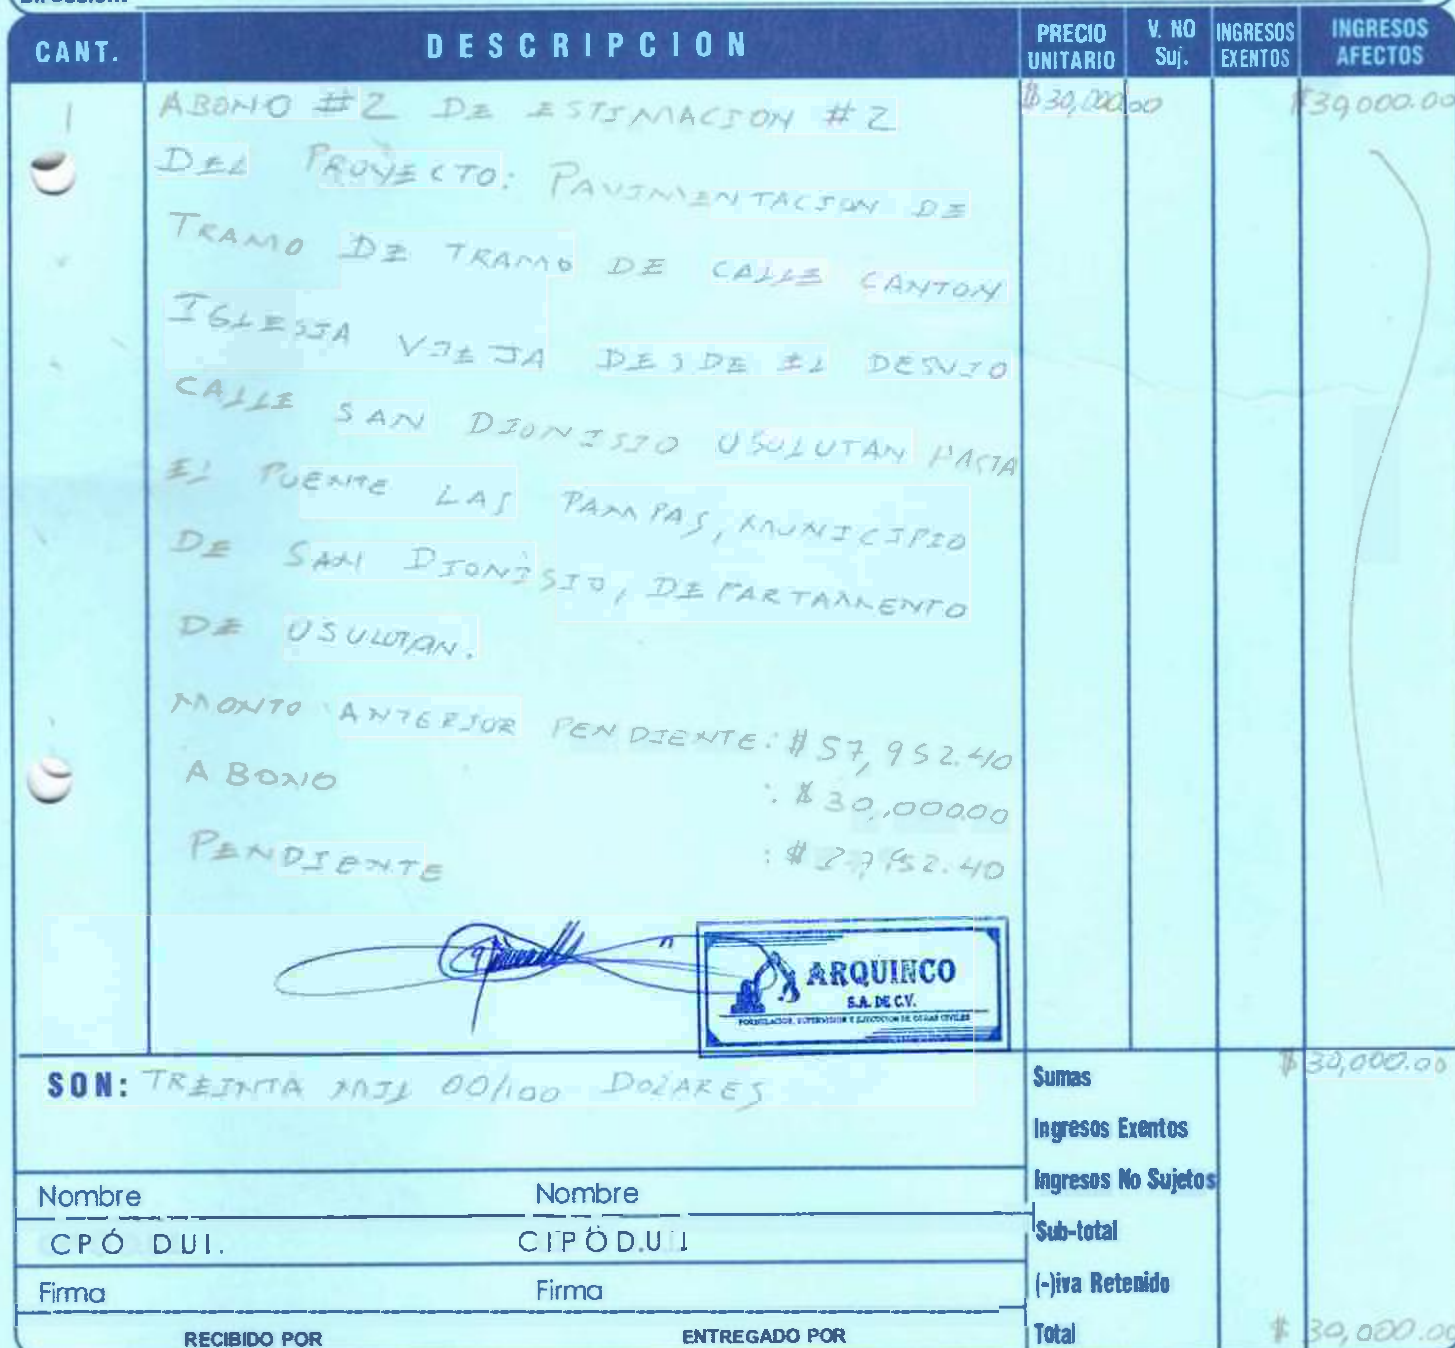 CANT. DESCRIPCION PRECIO UNITARIO V. NO Suj. INGRESOS EXENTOS INGRESOS AFECTOS
1 ABONO #2 DE ESTIMACION #2 $30,000.00 $30,000.00
DEL PROYECTO: PAVIMENTACION DE
TRAMO DE TRAMO DE CALLE CANTON
IGLESIA VIEJA DESDE EL DESVIO
CALLE SAN DIONISIO USULUTAN HASTA
EL PUENTE LAS PAMPAS, MUNICIPIO
DE SAN DIONISIO, DEPARTAMENTO
DE USULUTAN.
MONTO ANTERIOR PENDIENTE: $57,952.40
ABONO : $30,000.00
PENDIENTE : $27,952.40
ARQUINCO
S.A. DE C.V.
FORMULACION, SUPERVISION Y EJECUCION DE OBRAS CIVILES
SON: TREINTA MIL 00/100 DOLARES
Sumas $30,000.00
Ingresos Exentos
Ingresos No Sujetos
Sub-total
(-)iva Retenido
Total $30,000.00
Nombre Nombre
CPÓ DUI. CIPÓ D.U.I
Firma Firma
RECIBIDO POR ENTREGADO POR